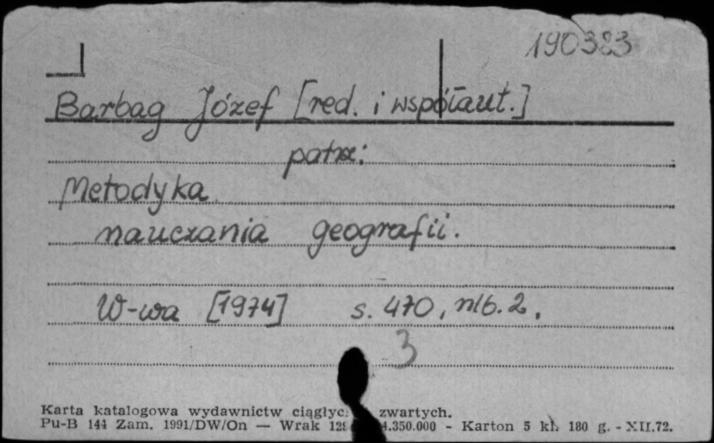 190383
Barbag Józef [red. i współaut.]
patrz:
Metodyka
nauczania geografii.
W-wa [1974] s. 470, nlb. 2.
3
Karta katalogowa wydawnictw ciągłyc zwartych.
Pu-B 144 Zam. 1991/DW/On — Wrak 4.350.000 - Karton 5 kl. 180 g. - XII.72.